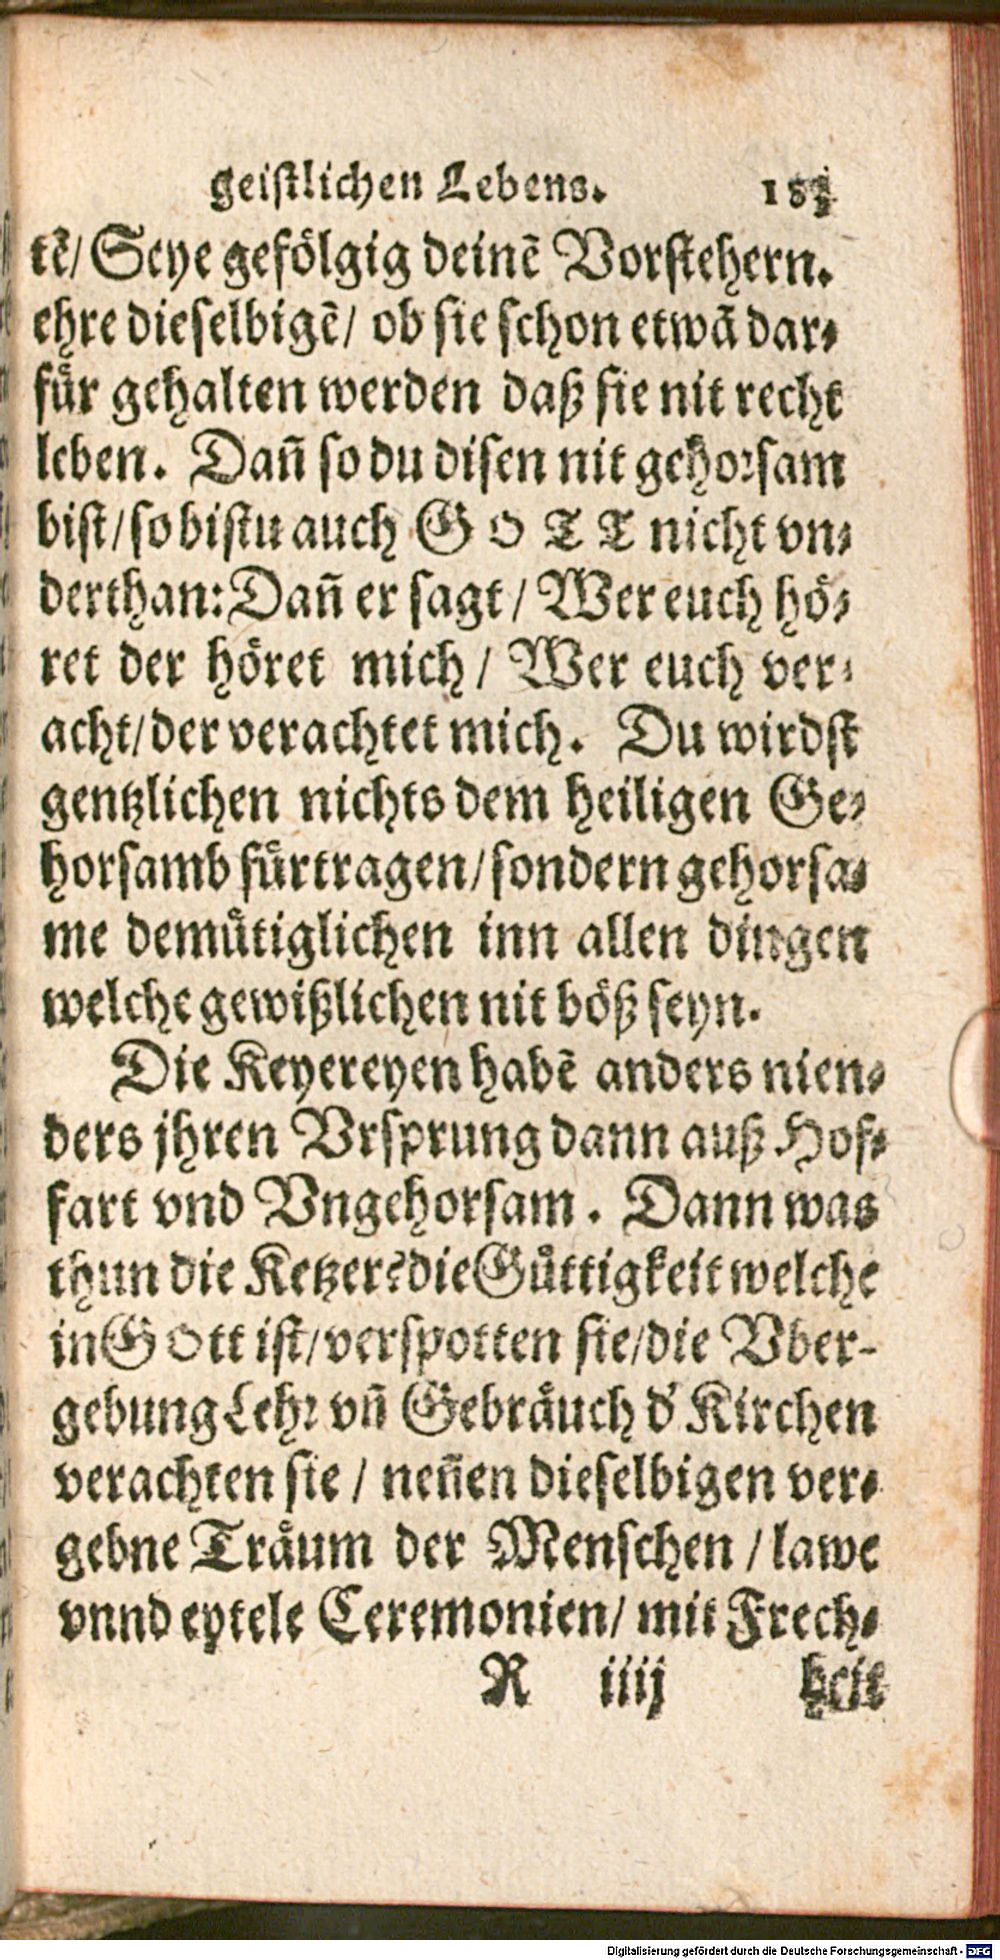 geistlichen Lebens.
tẽ/ Seye gefölgig deinẽ Vorstehern.
ehre dieselbigẽ/ ob sie schon etwã dar⸗
für gehalten werden daß sie nit recht
leben. Dañ so du disen nit gehorsam
bist/ so bistu auch GOTT nicht vn⸗
derthan: Dañ er sagt / Wer euch hö⸗
ret der höret mich / Wer euch ver⸗
acht/ der verachtet mich. Du wirdst
gentzlichen nichts dem heiligen Ge⸗
horsamb fürtragen/ sondern gehorsa⸗
me demütiglichen inn allen dingen
welche gewißlichen nit böß seyn.
Die Keyereyen habẽ anders nien⸗
ders jhren Vrsprung dann auß Hof⸗
fart vnd Vngehorsam. Dann was
thun die Ketzer? die Güttigkeit welche
in GOtt ist/ verspotten sie/ die Vber-
gebung Lehr vñ Gebräuch d' Kirchen
verachten sie / neñen dieselbigen ver⸗
gebne Träum der Menschen / lawe
vnnd eytele Ceremonien/ mit Frech⸗
R iiij heit
Digitalisierung gefördert durch die Deutsche Forschungsgemeinschaft - DFG